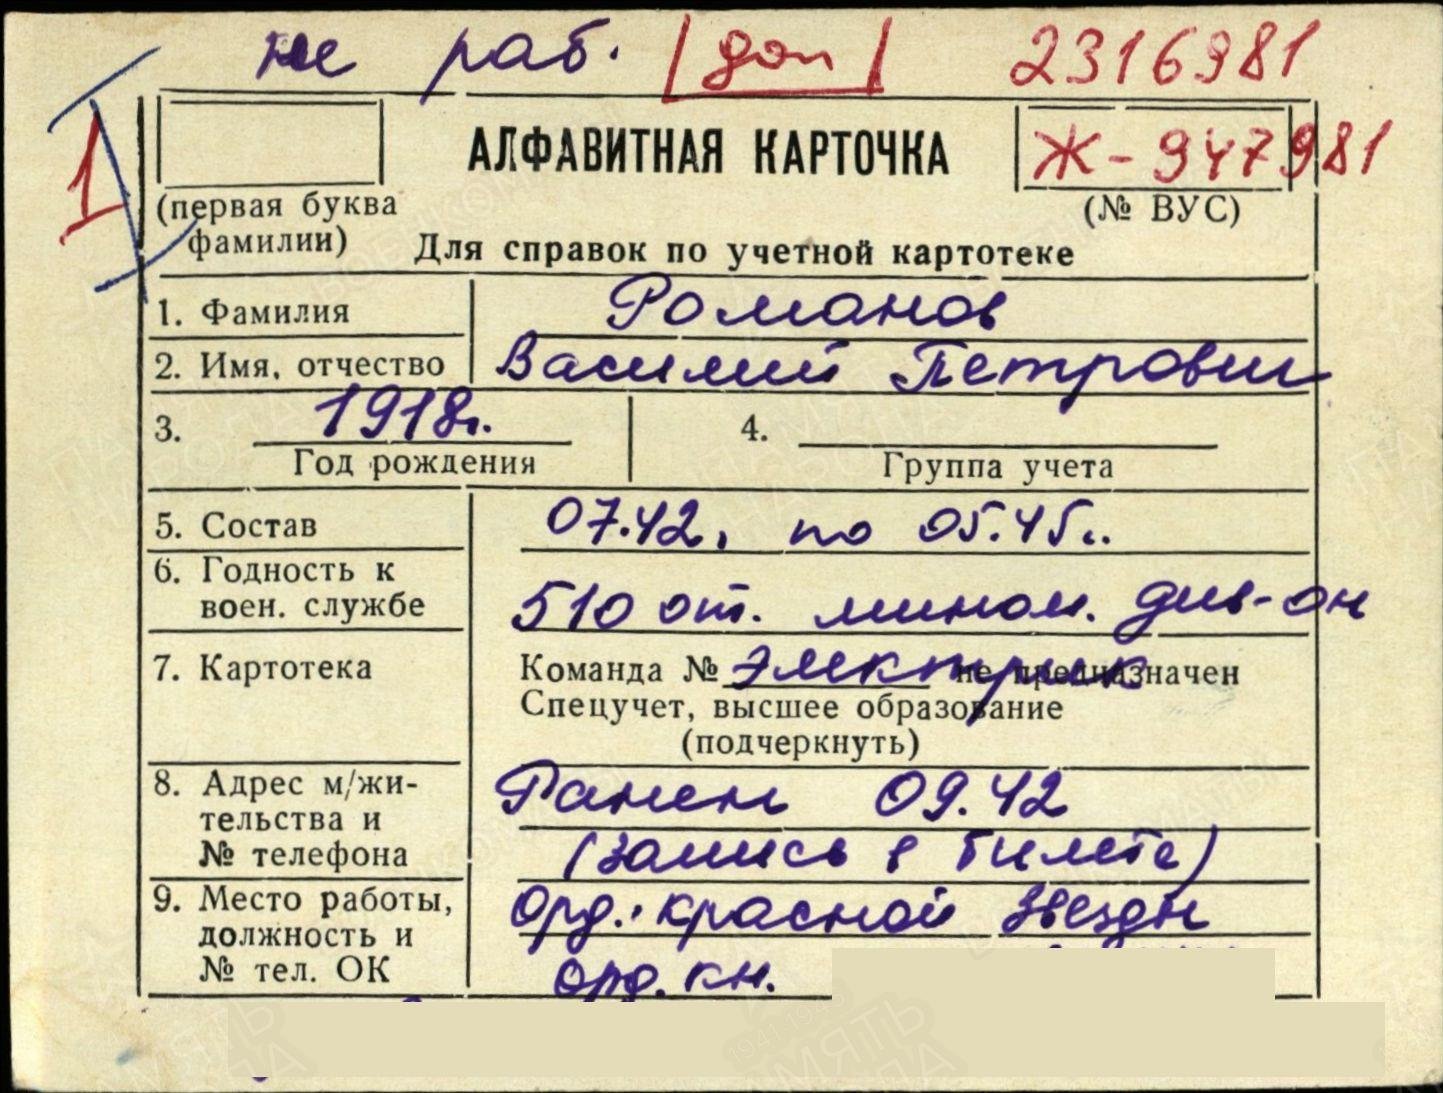 не раб. |доп| 2316981
1
АЛФАВИТНАЯ КАРТОЧКА
Ж-947981
(первая буква фамилии)
(№ ВУС)
Для справок по учетной картотеке
1. Фамилия Романов
2. Имя, отчество Василий Петрович
3. 1918г. 4.
Год рождения Группа учета
5. Состав 07.42. по 05.45г.
6. Годность к
воен. службе 510 от. мином. див-он
7. Картотека Команда № электрик не предназначен
Спецучет, высшее образование
(подчеркнуть)
8. Адрес м/жи- Ранен 09.42
тельства и
№ телефона (запись в билете)
9. Место работы, Орд. красной звезды
должность и
№ тел. ОК орд. кн.